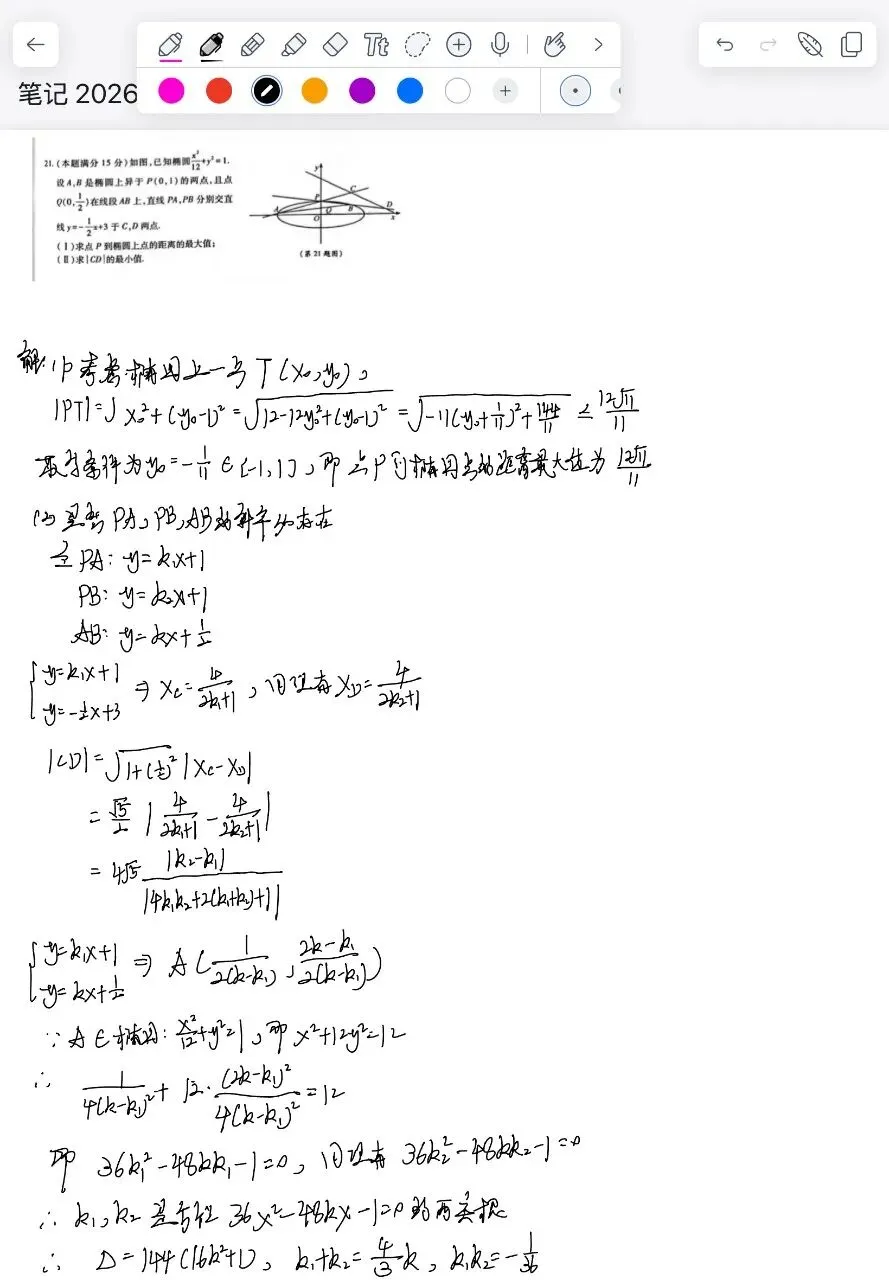 笔记 2026
21.(本题满分 15 分)如图,已知椭圆x²/12+y²=1.
设A,B是椭圆上异于P(0,1)的两点,且点
Q(0,1/2)在线段AB上,直线PA,PB分别交直
线y=-1/2x+3于C,D两点.
(Ⅰ)求点P到椭圆上点的距离的最大值;
(Ⅱ)求|CD|的最小值.
y
C
P
A
Q
B
D
O
x
(第21题图)
解:(1) 考虑椭圆上一点 T(x₀,y₀),
|PT|=√(x₀²+(y₀-1)²)=√(12-12y₀²+(y₀-1)²)=√(-11(y₀+1/11)²+144/11) ≤ 12√11/11
取等条件为y₀=-1/11∈[-1,1],即点P到椭圆点的距离最大值为 12√11/11
(2) 显然 PA,PB,AB的斜率均存在
令PA: y=k₁x+1
PB: y=k₂x+1
AB: y=kx+1/2
{y=k₁x+1
y=-1/2x+3 ⇒ x_C=4/(2k₁+1),同理有 x_D=4/(2k₂+1)
|CD|=√(1+(1/2)²)|x_C-x_D|
=√5/2 |4/(2k₁+1)-4/(2k₂+1)|
=4√5 |k₂-k₁|/|4k₁k₂+2(k₁+k₂)+1|
{y=k₁x+1
y=kx+1/2 ⇒ A(1/(2(k-k₁)), (2k-k₁)/(2(k-k₁)))
∵A∈椭圆: x²/12+y²=1,即x²+12y²=12
∴ 1/(4(k-k₁)²)+12·(2k-k₁)²/(4(k-k₁)²)=12
即 36k₁²-48kk₁-1=0,同理有 36k₂²-48kk₂-1=0
∴k₁,k₂是方程 36x²-48kx-1=0的两实根
∴ Δ=144(16k²+1), k₁+k₂=4/3k, k₁k₂=-1/36